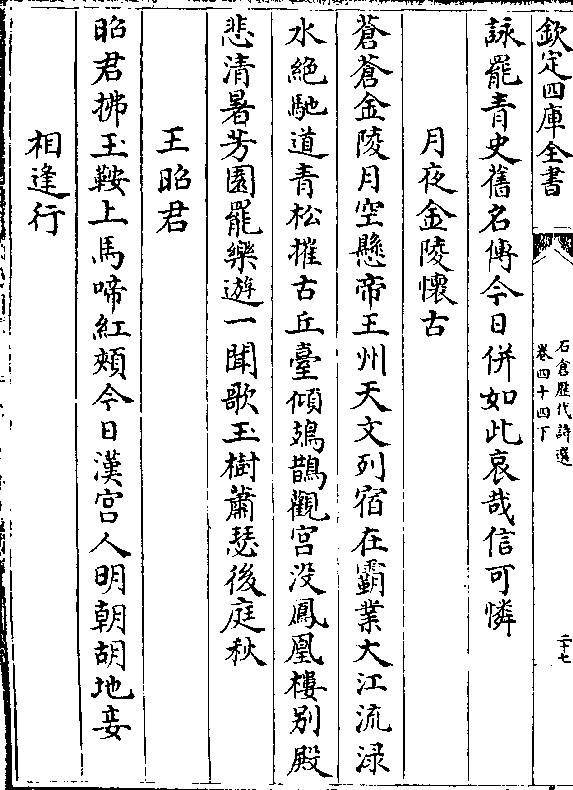 欽定四庫全書
石倉歷代詩選
卷四十四下
二十七
詠罷青史舊名傳今日併如此哀哉信可憐
月夜金陵懷古
蒼蒼金陵月空懸帝王州天文列宿在霸業大江流渌
水絶馳道青松摧古丘臺傾鳷鵲觀宫没鳳凰樓别殿
悲清暑芳園罷樂遊一聞歌玉樹蕭瑟後庭秋
王昭君
昭君拂玉鞍上馬啼紅頰今日漢宫人明朝胡地妾
相逢行